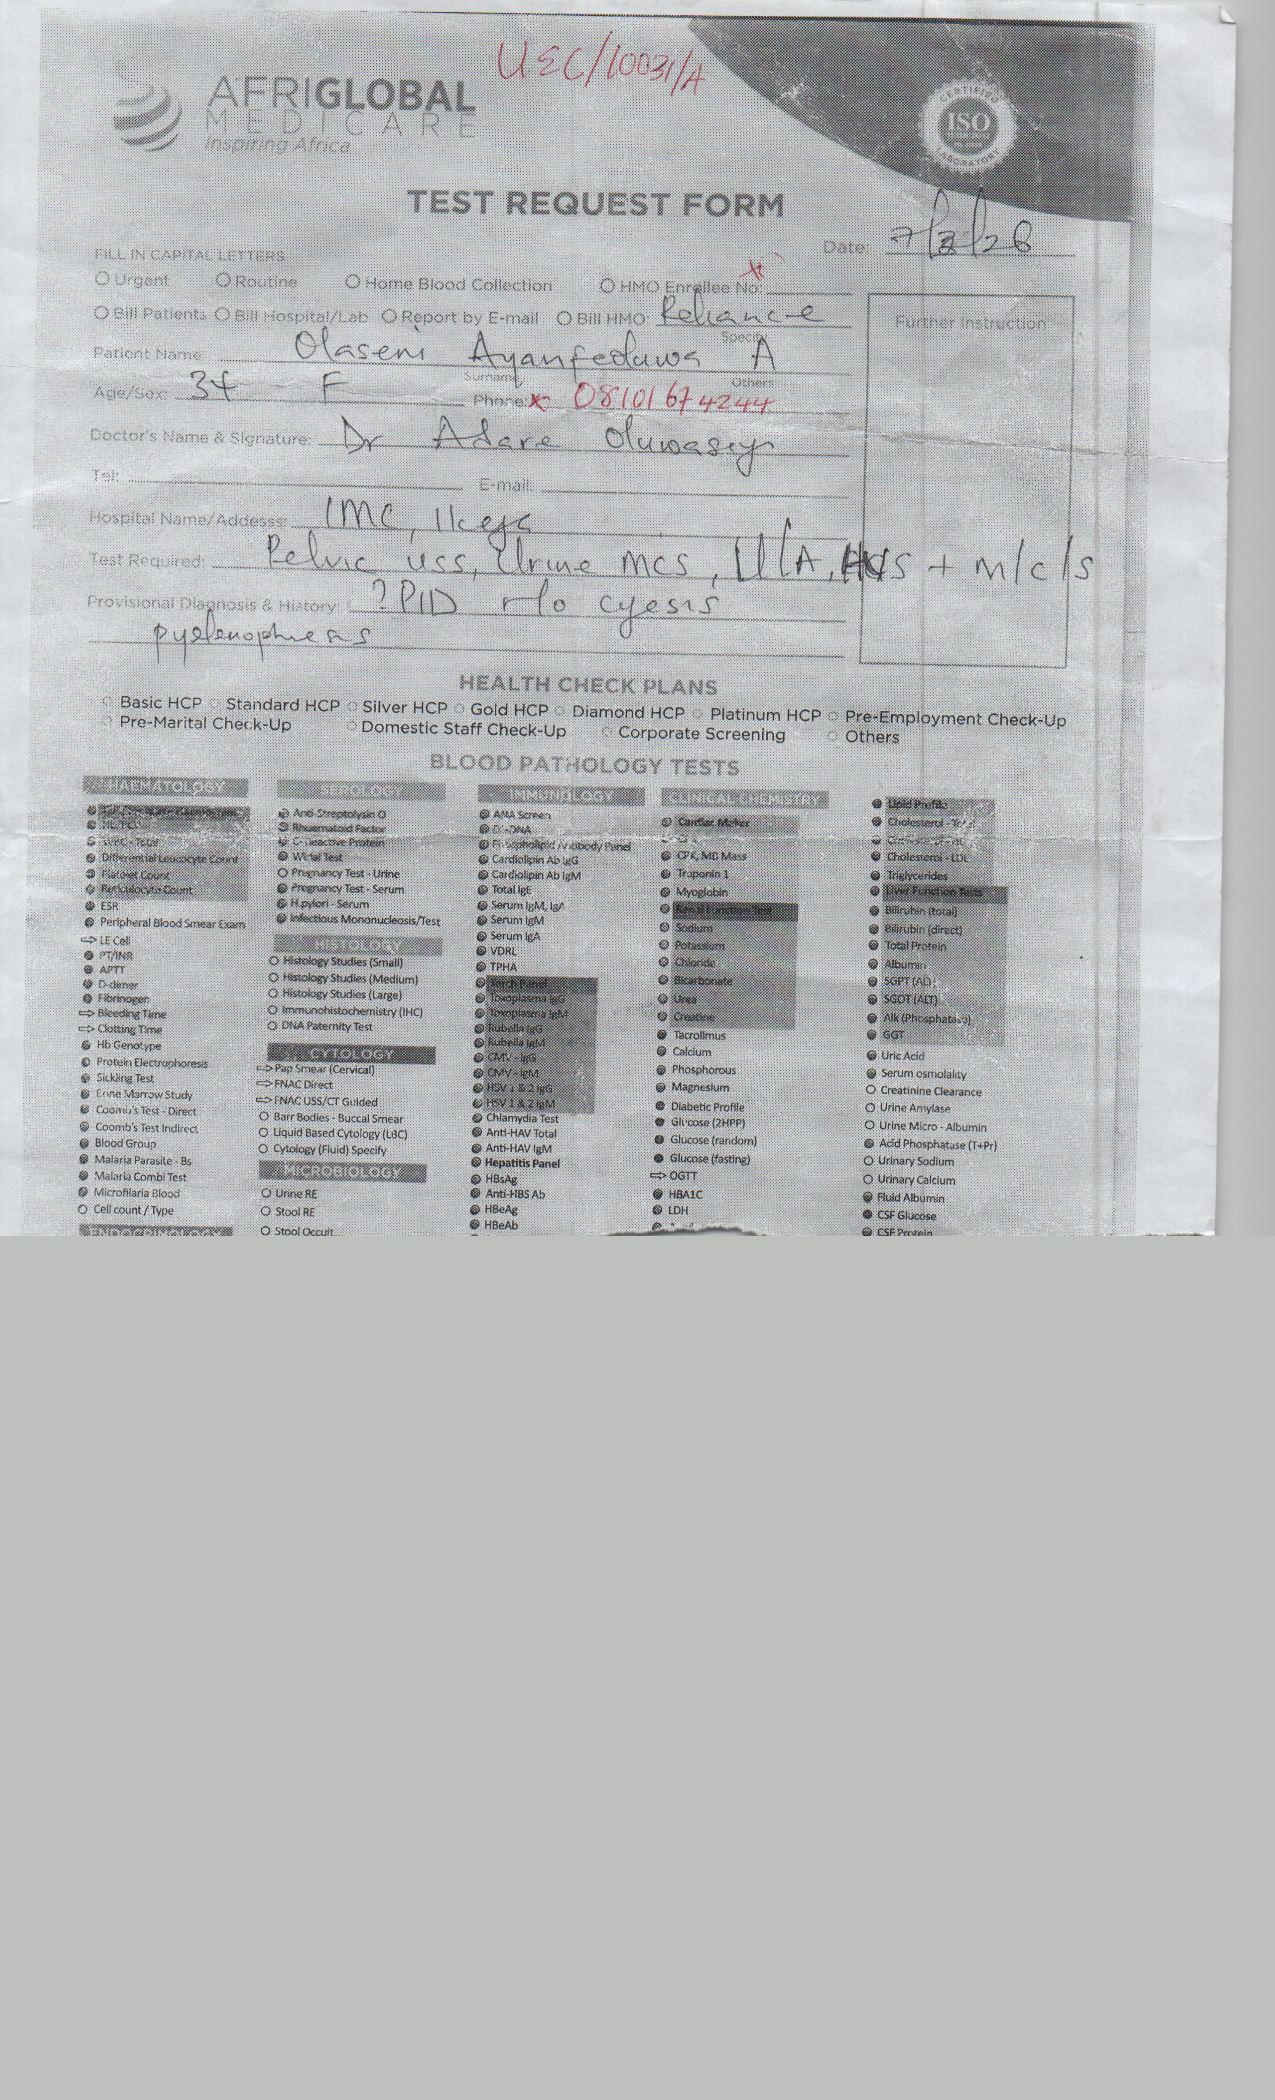 UEC/10031/A
AFRIGLOBAL
MEDICARE
Inspiring Africa
CERTIFIED
ISO
LABORATORY
TEST REQUEST FORM
Date: 7/2/26
FILL IN CAPITAL LETTERS
Urgent Routine Home Blood Collection HMO Enrollee No:
Bill Patients Bill Hospital/Lab Report by E-mail Bill HMO: Reliance
Further Instruction
Specify
Patient Name: Olaseni Ayanfeoluwa A
Surname Others
Age/Sex: 34 F Phone: 08101674244
Doctor's Name & Signature: Dr Adare Oluwaseyi
Tel: E-mail:
Hospital Name/Addesss: IMC, Ikeja
Test Required: Pelvic uss, Urine mcs, U/A, HVS + m/c/s
Provisional Diagnosis & History: ? PID r/o cyesis
HEALTH CHECK PLANS
Basic HCP Standard HCP Silver HCP Gold HCP Diamond HCP Platinum HCP Pre-Employment Check-Up
Pre-Marital Check-Up Domestic Staff Check-Up Corporate Screening Others
BLOOD PATHOLOGY TESTS
HAEMATOLOGY
WBC - Total
Differential Leucocyte Count
Platelet Count
Reticulocyte Count
ESR
Peripheral Blood Smear Exam
LE Cell
PT/INR
APTT
D-dimer
Fibrinogen
Bleeding Time
Clotting Time
Hb Genotype
Protein Electrophoresis
Sickling Test
Bone Marrow Study
Coomb's Test - Direct
Coomb's Test Indirect
Blood Group
Malaria Parasite - Bs
Malaria Combi Test
Microfilaria Blood
Cell count / Type
ENDOCRINOLOGY
SEROLOGY
Anti-Streptolysin O
Rheumatoid Factor
C-Reactive Protein
Widal Test
Pregnancy Test - Urine
Pregnancy Test - Serum
H.pylori - Serum
Infectious Mononucleosis/Test
HISTOLOGY
Histology Studies (Small)
Histology Studies (Medium)
Histology Studies (Large)
Immunohistochemistry (IHC)
DNA Paternity Test
CYTOLOGY
Pap Smear (Cervical)
FNAC Direct
FNAC USS/CT Guided
Barr Bodies - Buccal Smear
Liquid Based Cytology (LBC)
Cytology (Fluid) Specify
MICROBIOLOGY
Urine RE
Stool RE
Stool Occult
IMMUNOLOGY
ANA Screen
Ds-DNA
Phospholipid Antibody Panel
Cardiolipin Ab IgG
Cardiolipin Ab IgM
Total IgE
Serum IgM, IgA
Serum IgM
Serum IgA
VDRL
TPHA
Torch Panel
Toxoplasma IgG
Toxoplasma IgM
Rubella IgG
Rubella IgM
CMV - IgG
CMV - IgM
HSV 1 & 2 IgG
HSV 1 & 2 IgM
Chlamydia Test
Anti-HAV Total
Anti-HAV IgM
Hepatitis Panel
HBsAg
Anti-HBS Ab
HBeAg
HBeAb
CLINICAL CHEMISTRY
Cardiac Maker
CPK, MD Mass
Troponin 1
Myoglobin
Renal Function Test
Sodium
Potassium
Chloride
Bicarbonate
Urea
Creatine
Tacrolimus
Calcium
Phosphorous
Magnesium
Diabetic Profile
Glucose (2HPP)
Glucose (random)
Glucose (fasting)
OGTT
HBA1C
LDH
Lipid Profile
Cholesterol - Total
Cholesterol - LDL
Triglycerides
Liver Function Tests
Bilirubin (total)
Bilirubin (direct)
Total Protein
Albumin
SGPT (ALT)
SGOT (ALT)
Alk (Phosphatase)
GGT
Uric Acid
Serum osmolality
Creatinine Clearance
Urine Amylase
Urine Micro - Albumin
Acid Phosphatase (T+Pr)
Urinary Sodium
Urinary Calcium
Fluid Albumin
CSF Glucose
CSF Protein